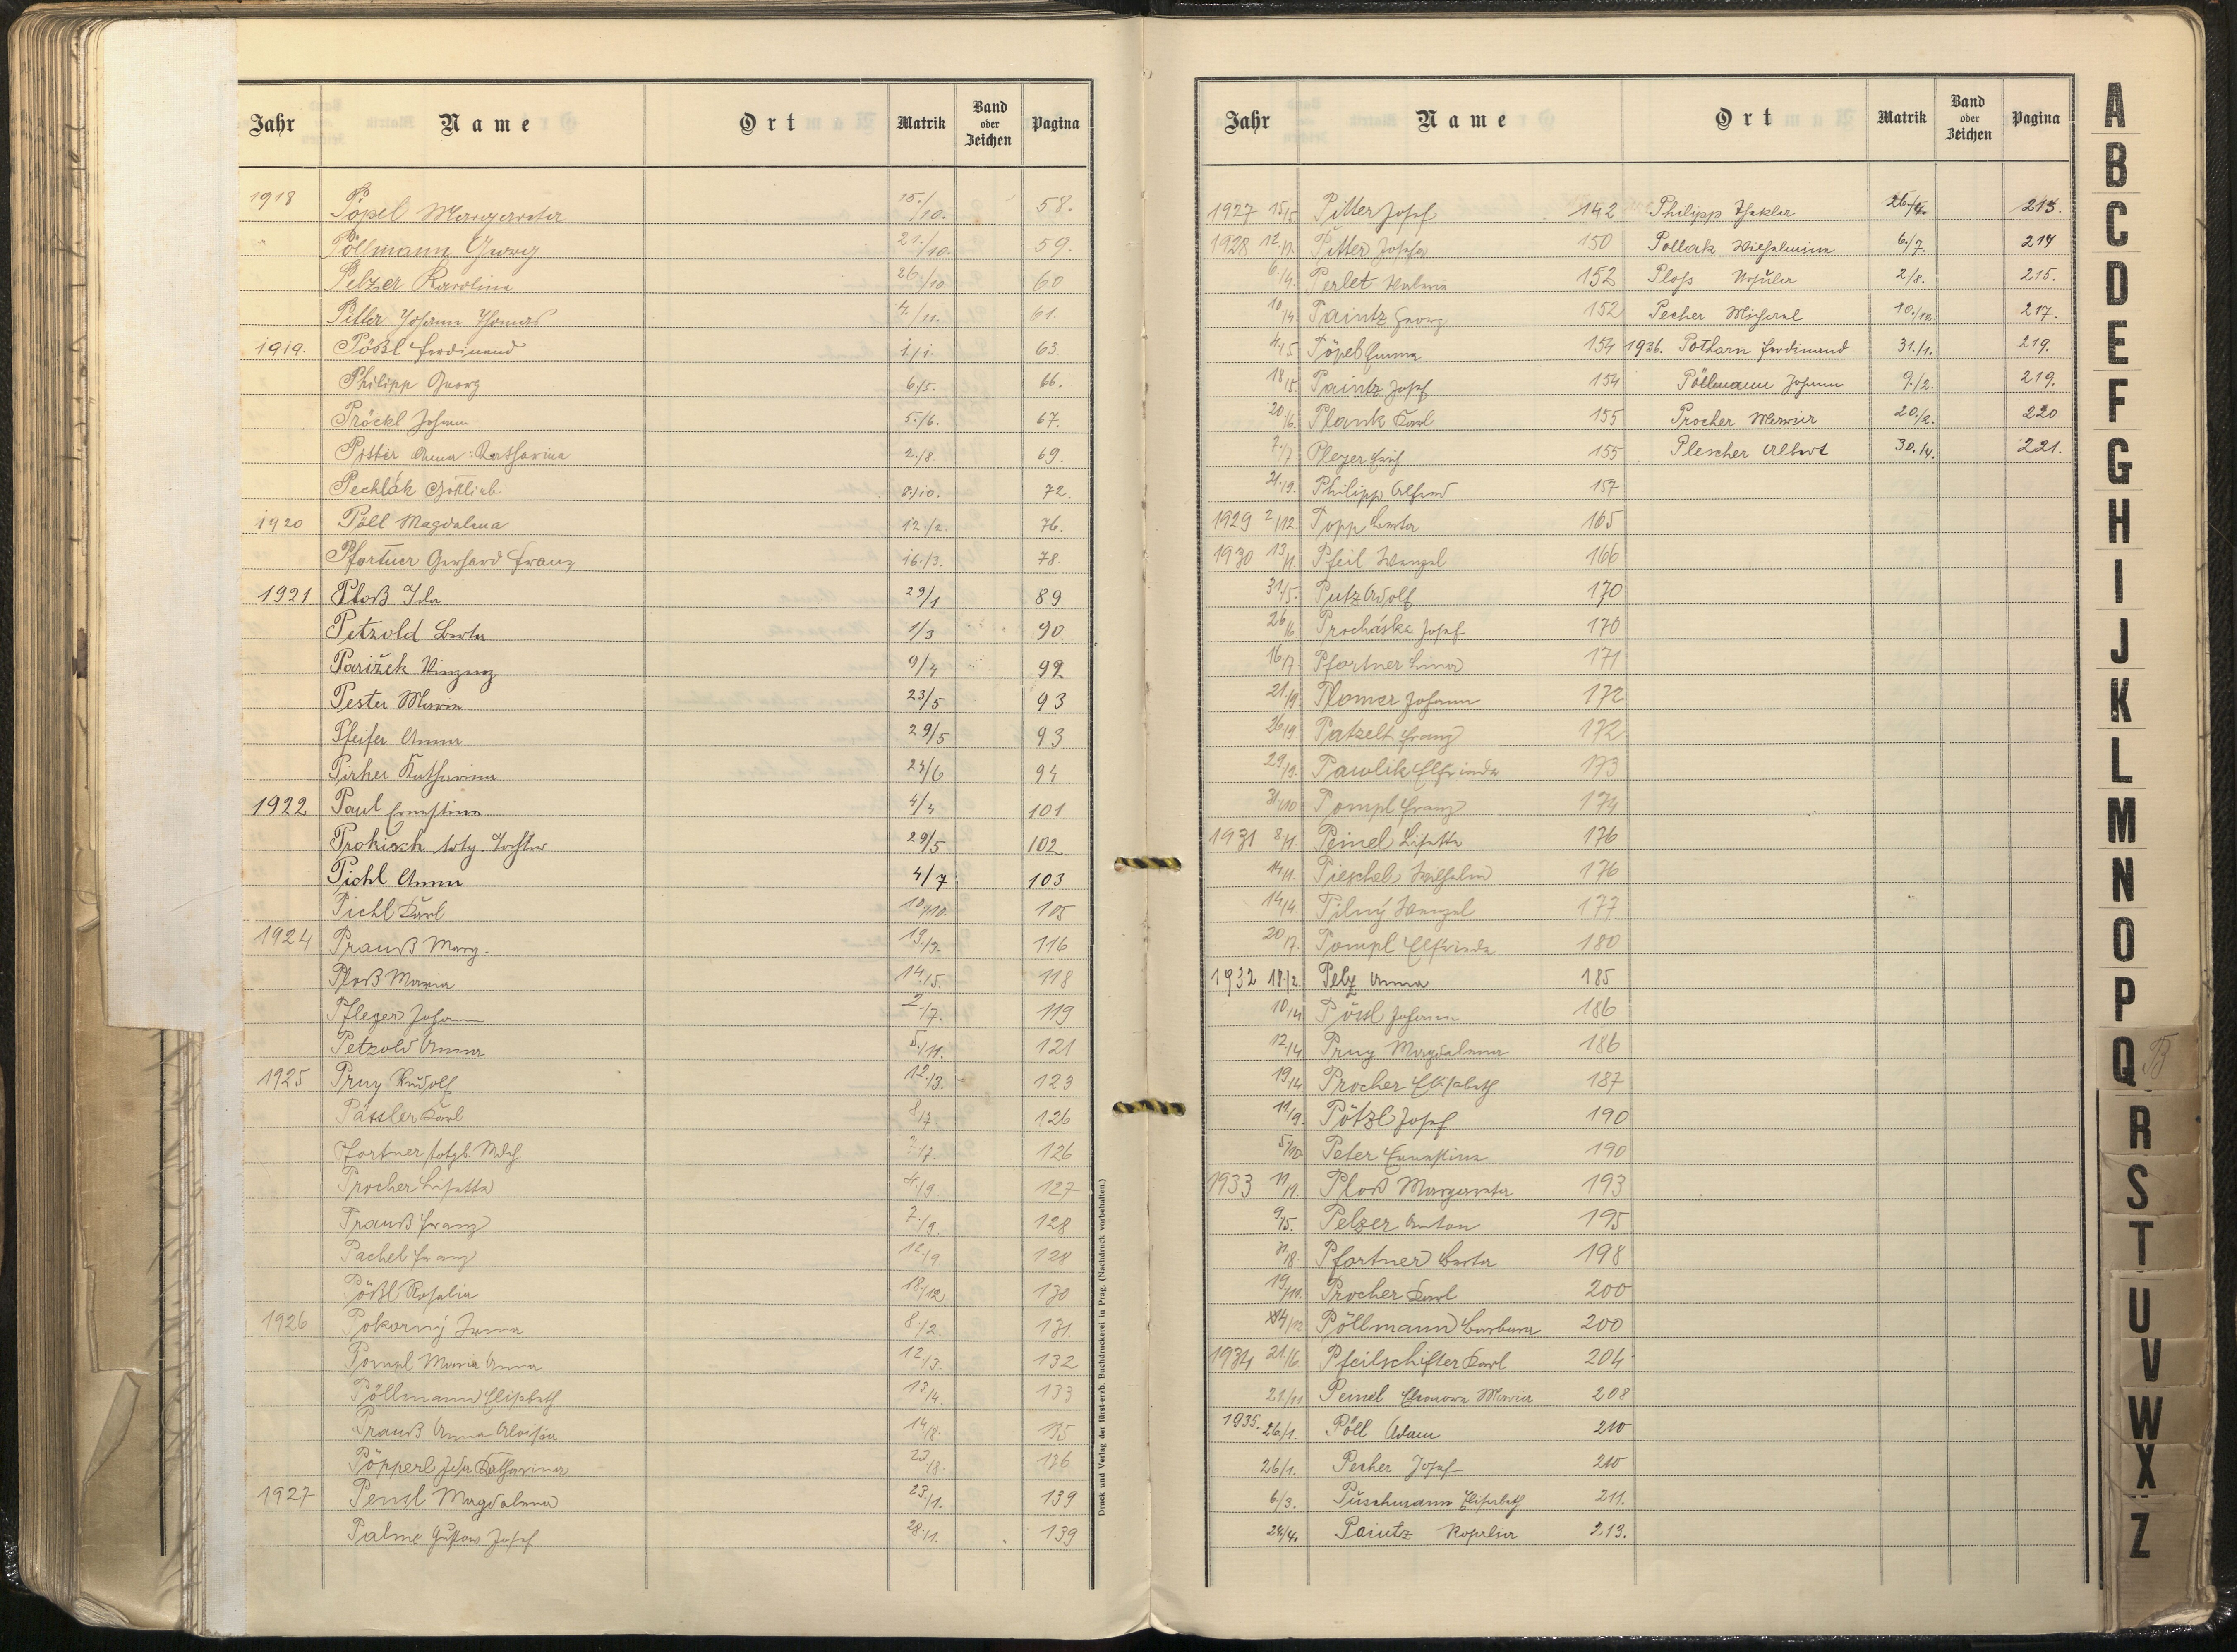 Jahr Name Ort Matrik Band oder Zeichen Pagina
1918 Pöpel Margareta 15./10. 58.
Pöllmann Georg 21./10. 59.
Pelzer Karolina 26./10. 60
Pitter Johann Thomas 4./11. 61.
1919. Pößl Ferdinand 1./1. 63
Philipp Georg 6./5. 66.
Pröckl Johann 5./6. 67.
Pitter Anna Katharina 2./8. 69.
Pechlák Gottlieb 8./10. 72.
1920 Pöll Magdalena 12./2. 76.
Pfortner Gerhard Franz 16./3. 78.
1921 Ploß Ida 29/1 89
Petzold Berta 1/3 90
Pařižek Vinzenz 9/4 92
Pester Maria 23/5 93
Pfeifer Anna 29/5 93
Pirher Katharina 24/6 94
1922 Paul Ernestine 4/4 101
Prokisch totg. Tochter 29/5 102
Pichl Anna 4/7 103
Pichl Karl 10/10. 105
1924 Prauß Marg. 19./3. 116
Ploß Maria 14./5. 118
Pfleger Johann 2./7. 119
Petzold Anna 5./11. 121
1925 Pruy Rudolf 12./3. 123
Pässler Karl 8/7 126
Pfortner totgb. 7. 126
Procher Lisette 4./9 127
Prauß Franz 7./9. 128
Pachel Franz 12./9 128
Pößl Rosalia 18./12 130
1926 Pokorný Irma 8./2. 131.
Pompl Maria Anna 12./3. 132
Pöllmann Elisabeth 13./4. 133
Prauß Anna Aloisia 14./8. 135
Pöpperl Katharina 23./8. 136
1927 Pensl Magdalena 23./1. 139
Palme Gustav Josef 28./1. 139
Druck und Verlag der fürst-erzb. Buchdruckerei in Prag. (Nachdruck vorbehalten.)
Jahr Name Ort Matrik Band oder Zeichen Pagina
1927 15/5 Pitter Josef 142 Philipp Thekla 26./4. 213.
1928 12/2. Pitter Josefa 150 Pollak Wilhelmine 6./7. 214
6./4. Perlet 152 Ploß Ursula 2/8. 215.
10/4 Paintz Georg 152 Pecher Michael 10./12. 217.
4./5 Pöpel Emma 154 1936. Potharn Ferdinand 31./1. 219.
18/5 Paintz Josef 154 Pöllmann Johann 9./2. 219.
20/6. Plank Karl 155 Procher Maria 20./2. 220
7./7 Pleyer Erich 155 Plescher Albert 30./4. 221.
21./9. Philipp Alfred 157
1929 2/12 Popp Berta 165
1930 13/1. Pfeil Wenzel 166
31/5. Putz Adolf 170
26/6 Procháska Josef 170
16/7 Pfortner Lina 171
21./9 Plomer Johann 172
26/9 Patzelt Franz 172
29/9. Pawlik Elfrieda 173
31/10 Pompl Franz 174
1931 8/1. Peinel Lisette 176
14/1. Pieschel Wilhelm 176
14/4. Pilný Wenzel 177
20/7. Pompl Elfrieda 180
1932 18./2. Pelz Anna 185
10/4 Pössl Johann 186
12/4 Pruy Magdalena 186
19/4 Procher Elisabeth 187
11/9. Pötzl Josef 190
5/10. Peter Ernestine 190
1933 11/1. Ploß Margareta 193
9/5. Pelzer Anton 195
31/8. Pfortner Berta 198
19/11. Procher Karl 200
4/12 Pöllmann Barbara 200
1934 21./6. Pfeilschifter Karl 204
21/11 Peinel Eleonora Maria 208
1935. 26/1. Pöll Adam 210
26/1. Pecher Josef 210
6/3. Puschmann Elisabeth 211.
24/4. Paintz Rosalia 213.
A
B
C
D
E
F
G
H
I
J
K
L
M
N
O
P
Q
R
S
T
U
V
W
X
Z